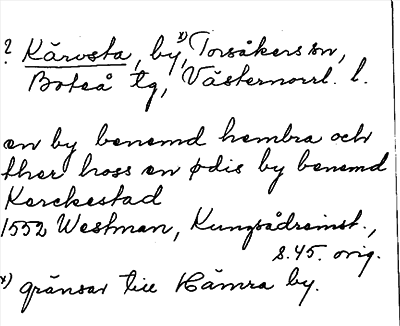 ? Kärvsta, by, x) Torsåkers sn,
Boteå tg, Västernorrl. l.
en by benemd hembra och
ther hoss en ødis by benemd
Kerckestad
1552 Westman, Kungsådreinst.,
s. 45. orig.
x) gränsar till Hämra by.